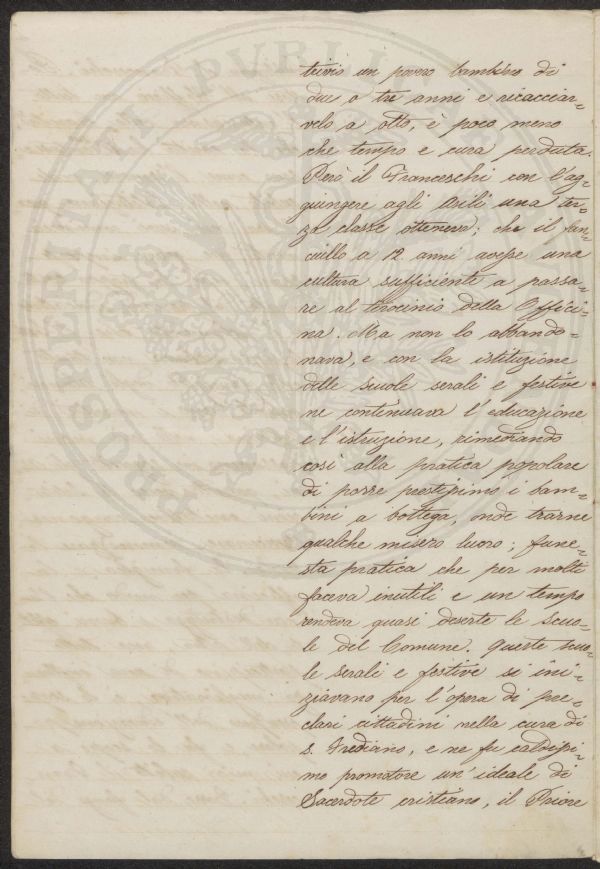 trivio un povero bambino di
due o tre anni e ricacciar-
velo a otto, è poco meno
che tempo e cura perduta.
Però il Franceschi con l'ag-
giungere agli Asili una ter-
za classe otteneva; che il fan-
ciullo a 12 anni avesse una
cultura sufficiente a passa-
re al tirocinio della Offici-
na. Ma non lo abbando-
nava, e con la istituzione
delle scuole serali e festive
ne continuava l'educazione
e l'istruzione, rimediando
così alla pratica popolare
di porre prestissimo i bam-
bini a bottega, onde trarne
qualche misero lucro; fune-
sta pratica che per molti
faceva inutili e un tempo
rendeva quasi deserte le scuo-
le del Comune. Queste scuo-
le serali e festive si ini-
ziavano per l'opera di pre-
clari cittadini nella cura di
S. Frediano, e ne fu caldissi-
mo promotore un'ideale di
Sacerdote cristiano, il Priore
PROSPERITATI PVBLICAE